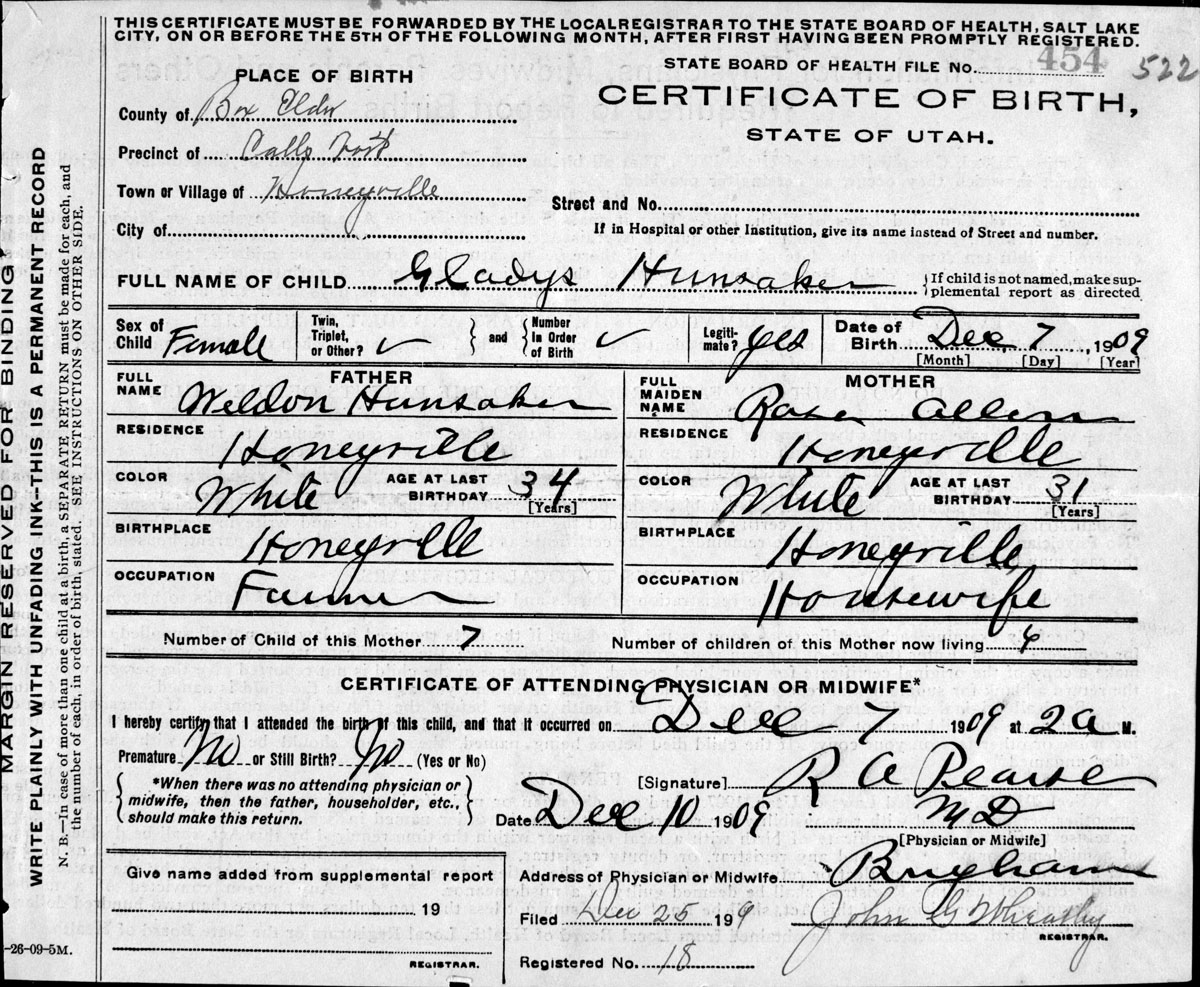 THIS CERTIFICATE MUST BE FORWARDED BY THE LOCAL REGISTRAR TO THE STATE BOARD OF HEALTH, SALT LAKE
CITY, ON OR BEFORE THE 5TH OF THE FOLLOWING MONTH, AFTER FIRST HAVING BEEN PROMPTLY REGISTERED.
STATE BOARD OF HEALTH FILE No. 454 522
PLACE OF BIRTH
CERTIFICATE OF BIRTH,
STATE OF UTAH.
County of Box Elder
Precinct of Calls Fort
Town or Village of Honeyville
Street and No.
City of
If in Hospital or other Institution, give its name instead of Street and number.
FULL NAME OF CHILD Gladys Hunsaker {If child is not named, make sup-
plemental report as directed
Sex of Child Female
Twin, Triplet, or Other? ✓ } and { Number In Order of Birth ✓
Legiti-mate? yes
Date of Birth Dec 7, 1909
[Month] [Day] [Year]
FATHER
FULL NAME Weldon Hunsaker
RESIDENCE Honeyville
COLOR White AGE AT LAST BIRTHDAY 34
[Years]
BIRTHPLACE Honeyville
OCCUPATION Farmer
MOTHER
FULL MAIDEN NAME Rose Allen
RESIDENCE Honeyville
COLOR White AGE AT LAST BIRTHDAY 31
[Years]
BIRTHPLACE Honeyville
OCCUPATION Housewife
Number of Child of this Mother 7 Number of children of this Mother now living 4
CERTIFICATE OF ATTENDING PHYSICIAN OR MIDWIFE*
I hereby certify that I attended the birth of this child, and that it occurred on Dec 7 1909 at 2a M.
Premature No or Still Birth? No (Yes or No)
{ *When there was no attending physician or
midwife, then the father, householder, etc.,
should make this return. }
[Signature] R A Pearse
Date Dec 10 1909 M D
[Physician or Midwife]
Give name added from supplemental report
19
REGISTRAR.
Address of Physician or Midwife Brigham
Filed Dec 25 199 John G Wheatley
REGISTRAR.
Registered No. 18
MARGIN RESERVED FOR BINDING
WRITE PLAINLY WITH UNFADING INK-THIS IS A PERMANENT RECORD
N. B.—In case of more than one child at a birth, a SEPARATE RETURN must be made for each, and
the number of each, in order of birth, stated. SEE INSTRUCTIONS ON OTHER SIDE.
-26-09-5M.